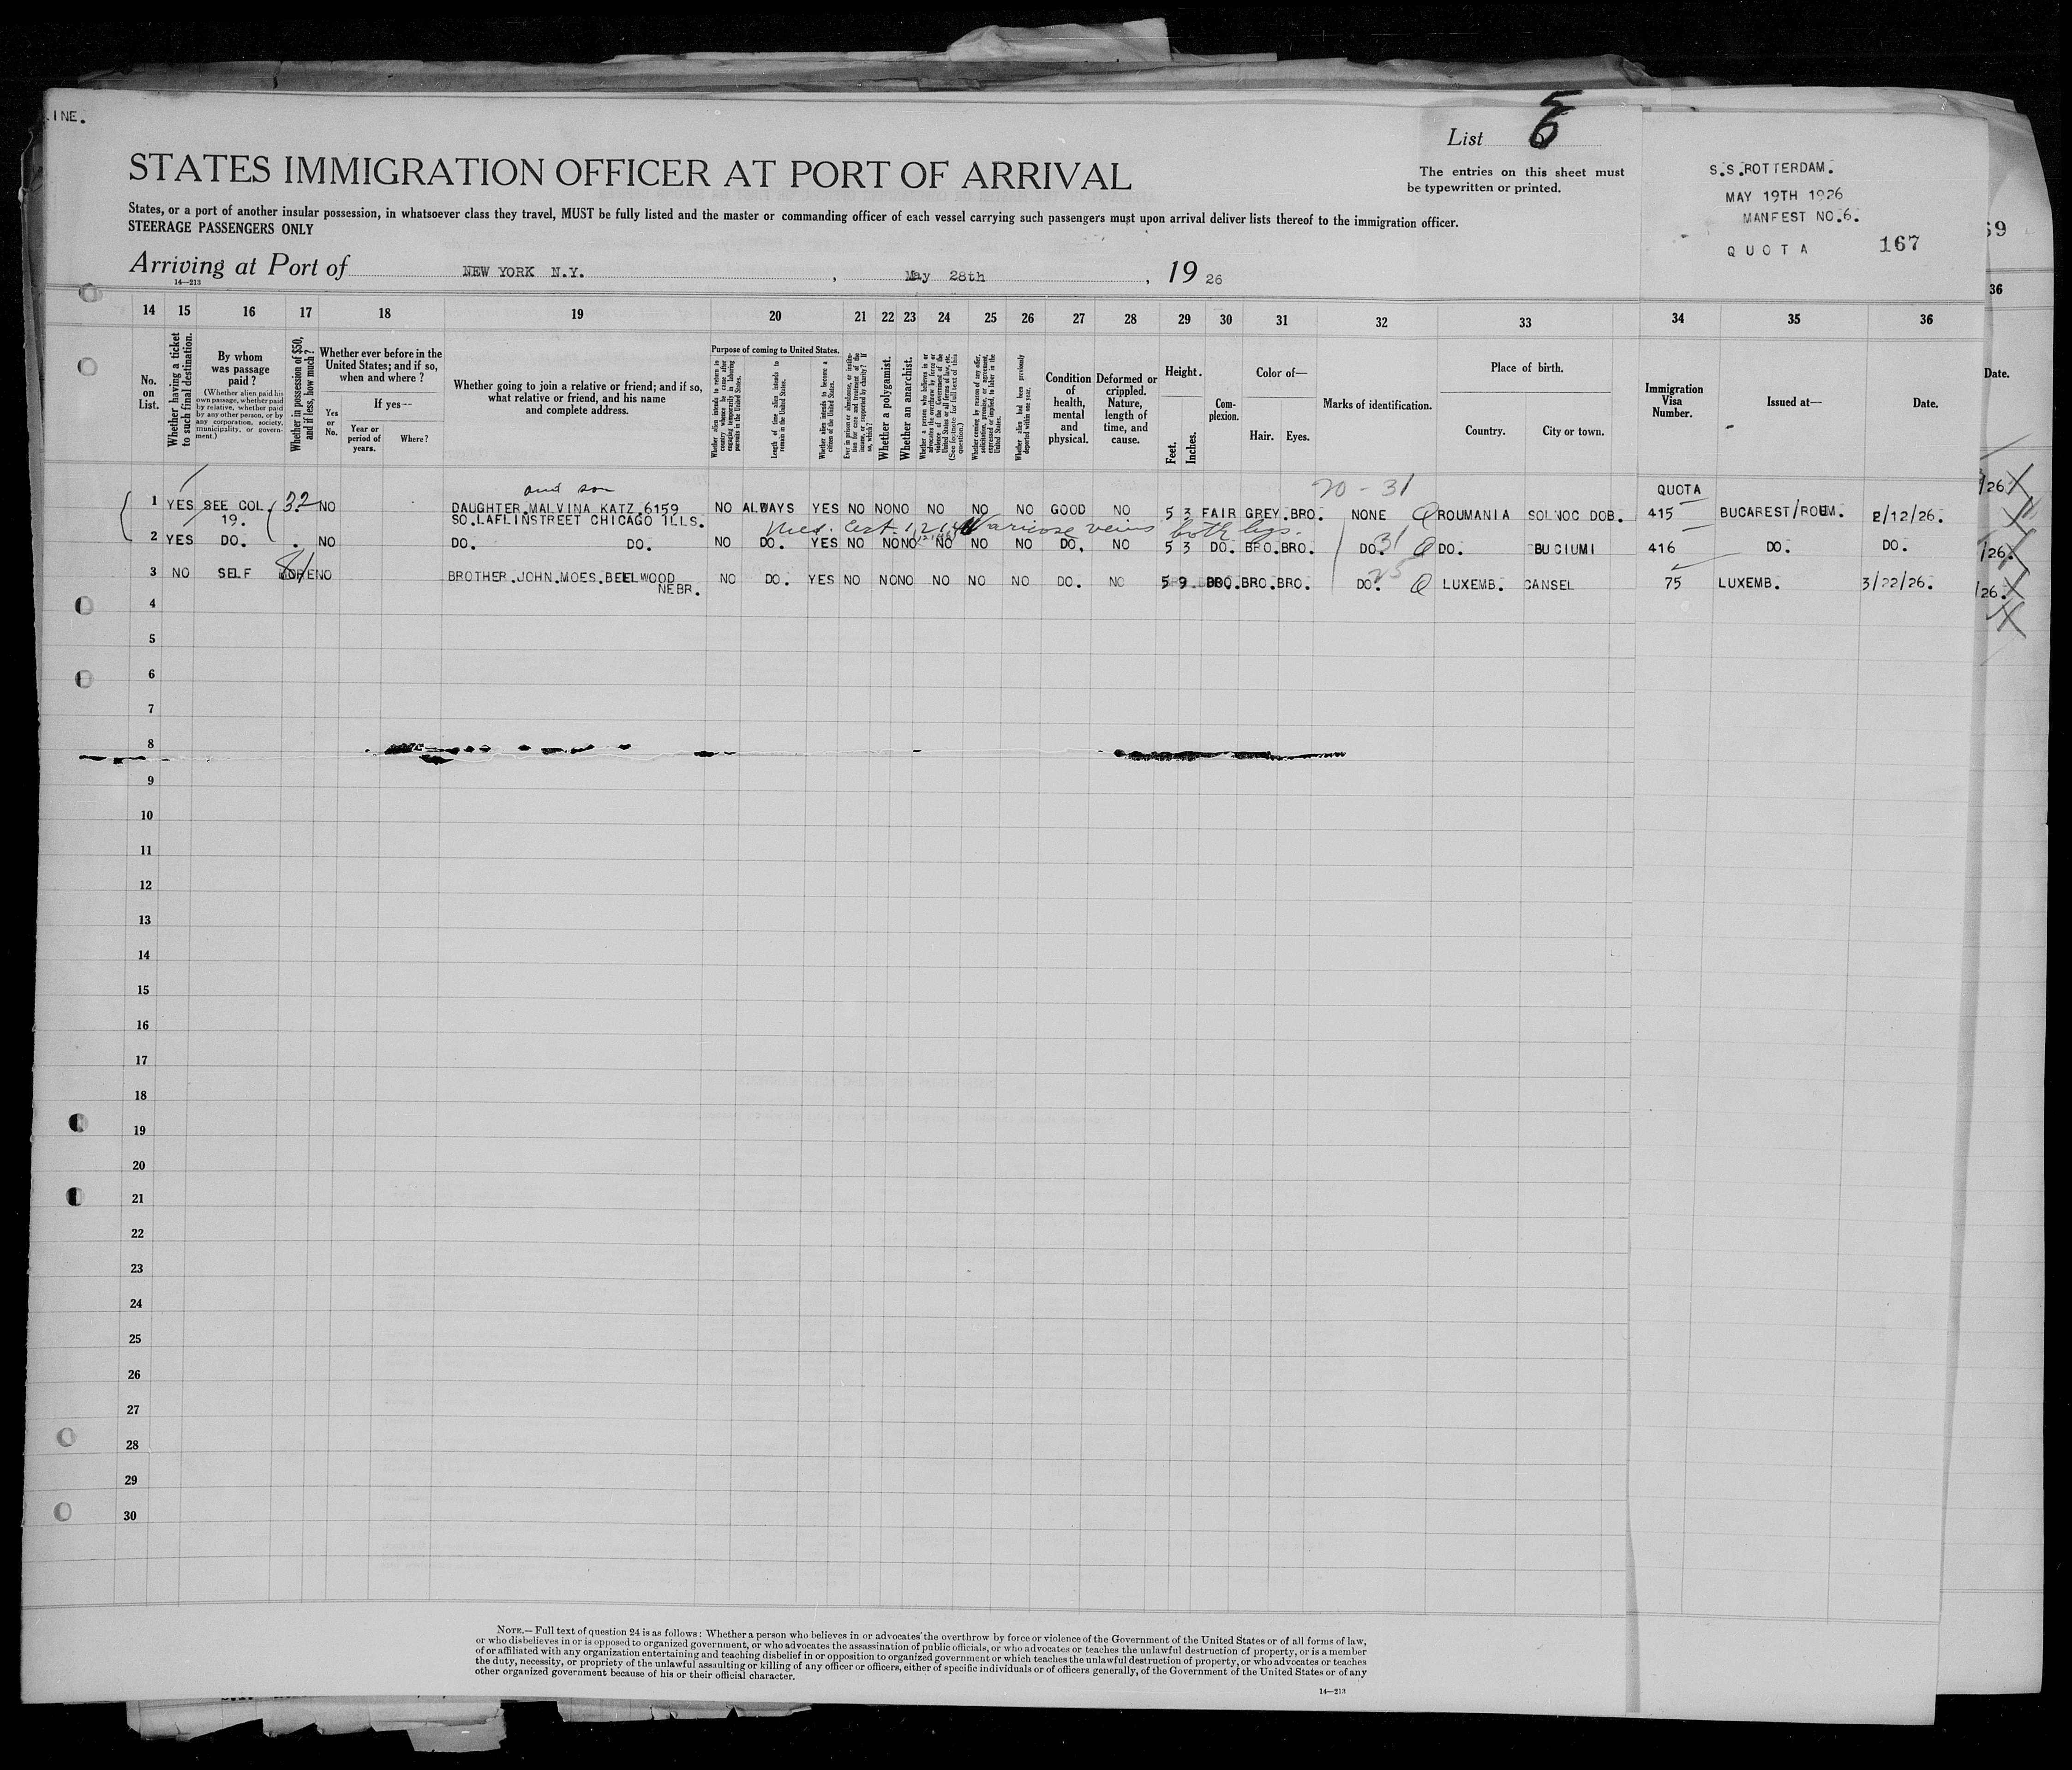 INE.
List 6
STATES IMMIGRATION OFFICER AT PORT OF ARRIVAL
The entries on this sheet must
be typewritten or printed.
States, or a port of another insular possession, in whatsoever class they travel, MUST be fully listed and the master or commanding officer of each vessel carrying such passengers must upon arrival deliver lists thereof to the immigration officer.
STEERAGE PASSENGERS ONLY
Arriving at Port of NEW YORK N.Y. , May 28th , 19 26
14—213
S.S.ROTTERDAM.
MAY 19TH 1926
MANFEST NO.6.
QUOTA 167
14 15 16 17 18 19 20 21 22 23 24 25 26 27 28 29 30 31 32 33 34 35 36
36
No. on List.
Whether having a ticket to such final destination.
By whom was passage paid?
(Whether alien paid his own passage, whether paid by relative, whether paid by any other person, or by any corporation, society, municipality, or government.)
Whether in possession of $50, and if less, how much?
Whether ever before in the United States; and if so, when and where?
Yes or No.
If yes—
Year or period of years.
Where?
Whether going to join a relative or friend; and if so, what relative or friend, and his name and complete address.
Purpose of coming to United States.
Whether alien intends to return to country whence he came after engaging temporarily in laboring pursuits in the United States.
Length of time alien intends to remain in the United States.
Whether alien intends to become a citizen of the United States.
Ever in prison or almshouse, or institution for care and treatment of the insane, or supported by charity? If so, which?
Whether a polygamist.
Whether an anarchist.
Whether a person who believes in or advocates the overthrow by force or violence of the Government of the United States or all forms of law, etc. (See footnote for full text of this question.)
Whether coming by reason of any offer, solicitation, promise, or agreement, expressed or implied, to labor in the United States.
Whether alien had been previously deported within one year.
Condition of health, mental and physical.
Deformed or crippled. Nature, length of time, and cause.
Height.
Feet. Inches.
Complexion.
Color of—
Hair. Eyes.
Marks of identification.
Place of birth.
Country. City or town.
Immigration Visa Number.
Issued at—
Date.
Date.
and son
20 - 31
QUOTA
1 YES SEE COL 19. 32 NO DAUGHTER.MALVINA KATZ.6159 NO ALWAYS YES NO NO NO NO NO NO GOOD NO 5 3 FAIR GREY.BRO. NONE Q ROUMANIA SOLNOC DOB. 415 BUCAREST/ROUM. 2/12/26.
SO.LAFLINSTREET CHICAGO ILLS.
Med. Cert. Varicose veins both legs.
2 YES DO. NO DO. DO. NO DO. YES NO NO NO NO NO NO DO. NO 5 3 DO. BRO.BRO. DO. 31 Q DO. BUCIUMI 416 DO. DO.
3 NO SELF NO BROTHER.JOHN.MOES.BEELWOOD NO DO. YES NO NO NO NO NO NO DO. NO 5 9 BRO.BRO.BRO. DO. 25 Q LUXEMB. CANSEL 75 LUXEMB. 3/22/26.
NEBR.
/26.
/26.
/26.
4
5
6
7
8
9
10
11
12
13
14
15
16
17
18
19
20
21
22
23
24
25
26
27
28
29
30
NOTE.—Full text of question 24 is as follows: Whether a person who believes in or advocates the overthrow by force or violence of the Government of the United States or of all forms of law,
or who disbelieves in or is opposed to organized government, or who advocates the assassination of public officials, or who advocates or teaches the unlawful destruction of property, or is a member
of or affiliated with any organization entertaining and teaching disbelief in or opposition to organized government or which teaches the unlawful destruction of property, or who advocates or teaches
the duty, necessity, or propriety of the unlawful assaulting or killing of any officer or officers, either of specific individuals or of officers generally, of the Government of the United States or of any
other organized government because of his or their official character.
14—213